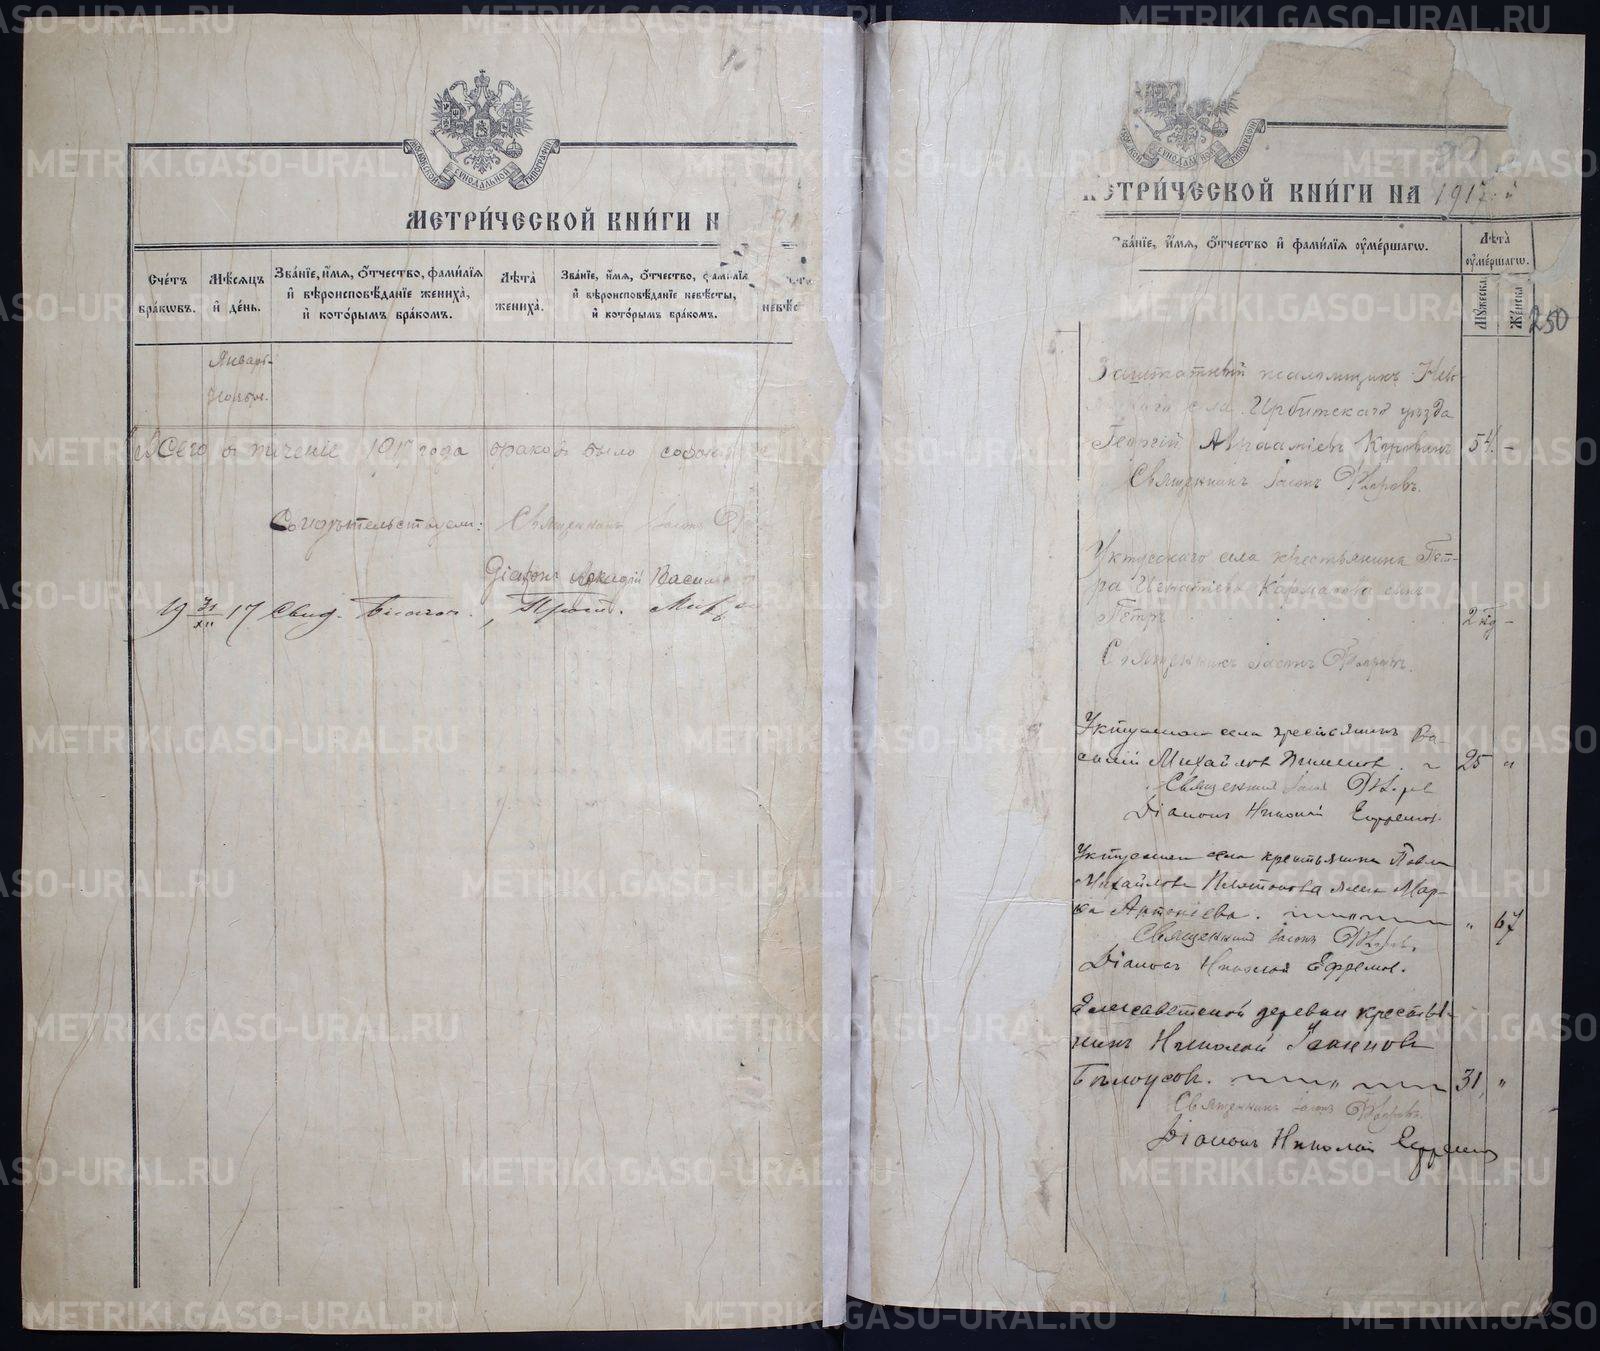 МЕТРИ́ЧЕСКОЙ КНИ́ГИ Н
Сче́тъ бра́кѡвъ.
Мѣ́сяцъ и҆ де́нь.
Зва́нїе, и҆́мя, ѻ҆́тчество, фамилїя и҆ вѣроисповѣ́данїе жениха̀, и҆ кото́рымъ бра́комъ.
Лѣ́та жениха̀.
Зва́нїе, и҆́мя, ѻ҆́тчество, фамилїя и҆ вѣроисповѣ́данїе невѣ́сты, и҆ кото́рымъ бра́комъ.
невѣ́с
Январь-
Ноябрь.
Всего въ теченіе 1917 года браковъ было
Свидѣтельствуемъ: Священникъ Іасонъ
Діаконъ Аркадій
19 31/XII 17 Свид. Благоч., Прот.
МЕТРИ́ЧЕСКОЙ КНИ́ГИ НА 1917
Зва́нїе, и҆́мя, ѻ҆́тчество и҆ фами́лїя ᲂу҆ме́ршагѡ.
Лѣ́та ᲂу҆ме́ршагѡ.
Мꙋ́жеска
Же́нска
250
Заштатный псаломщикъ
села Ирбитскаго уѣзда
Георгій Аврааміевъ 54. -
Священникъ Іасонъ
Уктусскаго села крестьянина Пет-
ра Игнатіева Карматова сынъ
Петръ 2 нд -
Священникъ Іасонъ
Уктусскаго села крестьянинъ Ва-
силій Михайловъ Пименовъ. 25 "
Священникъ Іасонъ
Діаконъ Николай Ефремовъ.
Уктусскаго села крестьянина Павла
Михайлова Платонова жена Мар-
ѳа Антоніева. " 67
Священникъ Іасонъ
Діаконъ Николай Ефремовъ.
Елисаветской деревни крестья-
нинъ Николай Іоанновъ
Бѣлоусовъ. 31, "
Священникъ Іасонъ
Діаконъ Николай Ефремовъ
METRIKI.GASO-URAL.RU